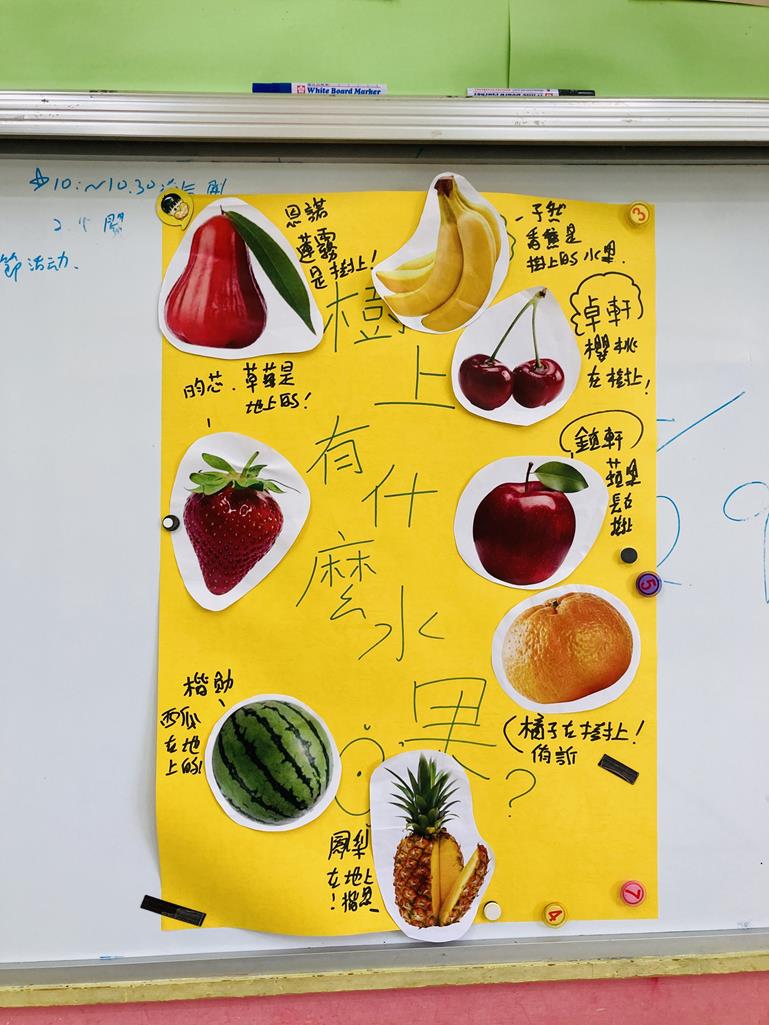 White Board Marker
White Board Marker
10:~10:30
節活动.
恩諾
蓮霧
是樹上!
一子然
香蕉是
樹上的水果.
樹
上
有
什
麼
水
果
?
卓軒
櫻桃
在樹上!
昀芯.草莓是
地上的!
鎮軒
蘋果
長在
樹
楷勛
西瓜
在地
上的!
橘子在樹上!
侑訢
鳳梨
在地上
!楷恩
3
5
7
4
29